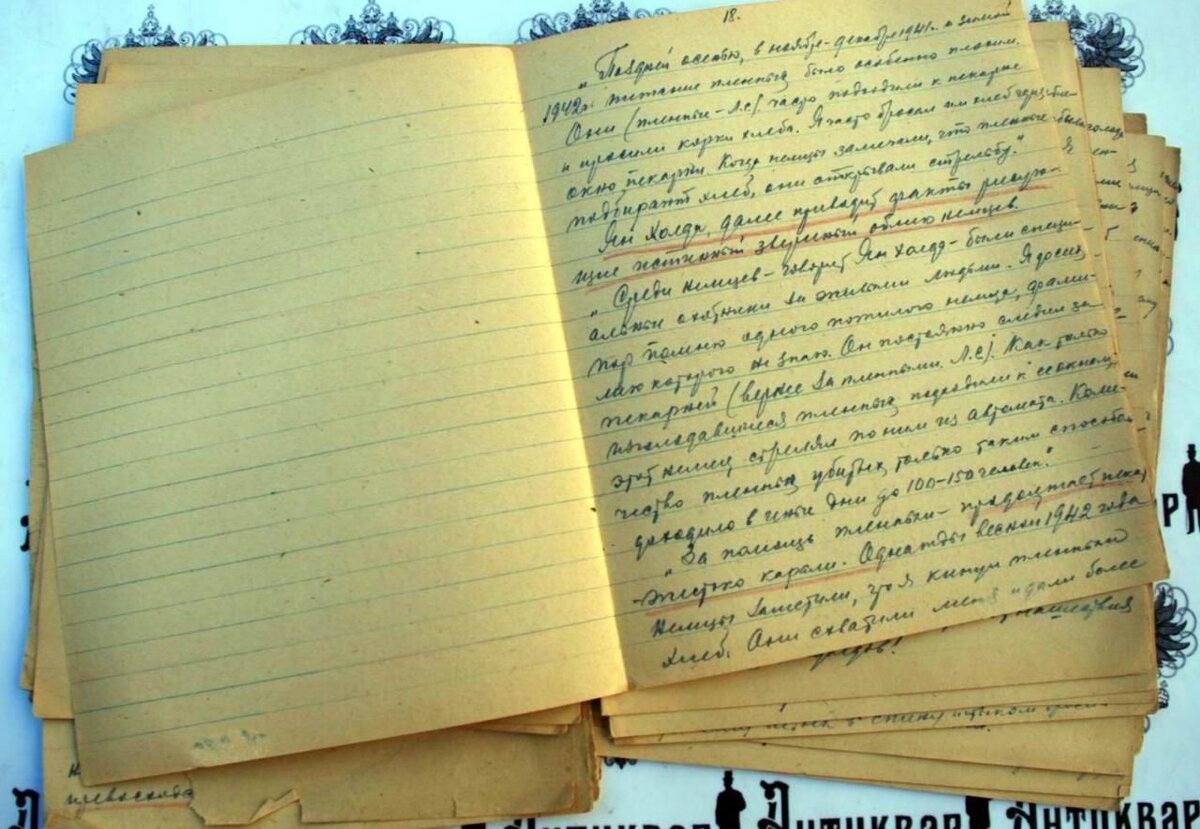 18.
„Поздней осенью, в ноябре-декабре 1941г. и зимой
1942г. питание пленных было особенно плохим.
Они (пленные - Л.С.) часто подходили к пекарне
и просили корки хлеба. Я часто бросал им хлеб через
окно пекарни. Когда немцы замечали, что пленные
подбирают хлеб, они открывали стрельбу."
Ян Холда, далее приводит факты рисую-
щие истинный звериный облик немцев.
„Среди немцев - говорит Ян Холда - были специ-
альные охотники за живыми людьми. Я до сих
пор помню одного пожилого немца, фами-
лию которого не знаю. Он постоянно следил за
пекарней (вернее за пленными. Л.С.). Как только
изголодавшиеся пленные подходили к окном
этот немец стрелял по ним из автомата. Коли-
чество пленных убитых только таким способом
доходило в иные дни до 100-150 человек."
„За помощь пленным - продолжает пекарь
жестоко карали. Однажды весной 1942 года
немцы заметили, что я кинул пленным
хлеб. Они схватили меня и дали более
нашествия
превосходв
Антиквар
Антиквар